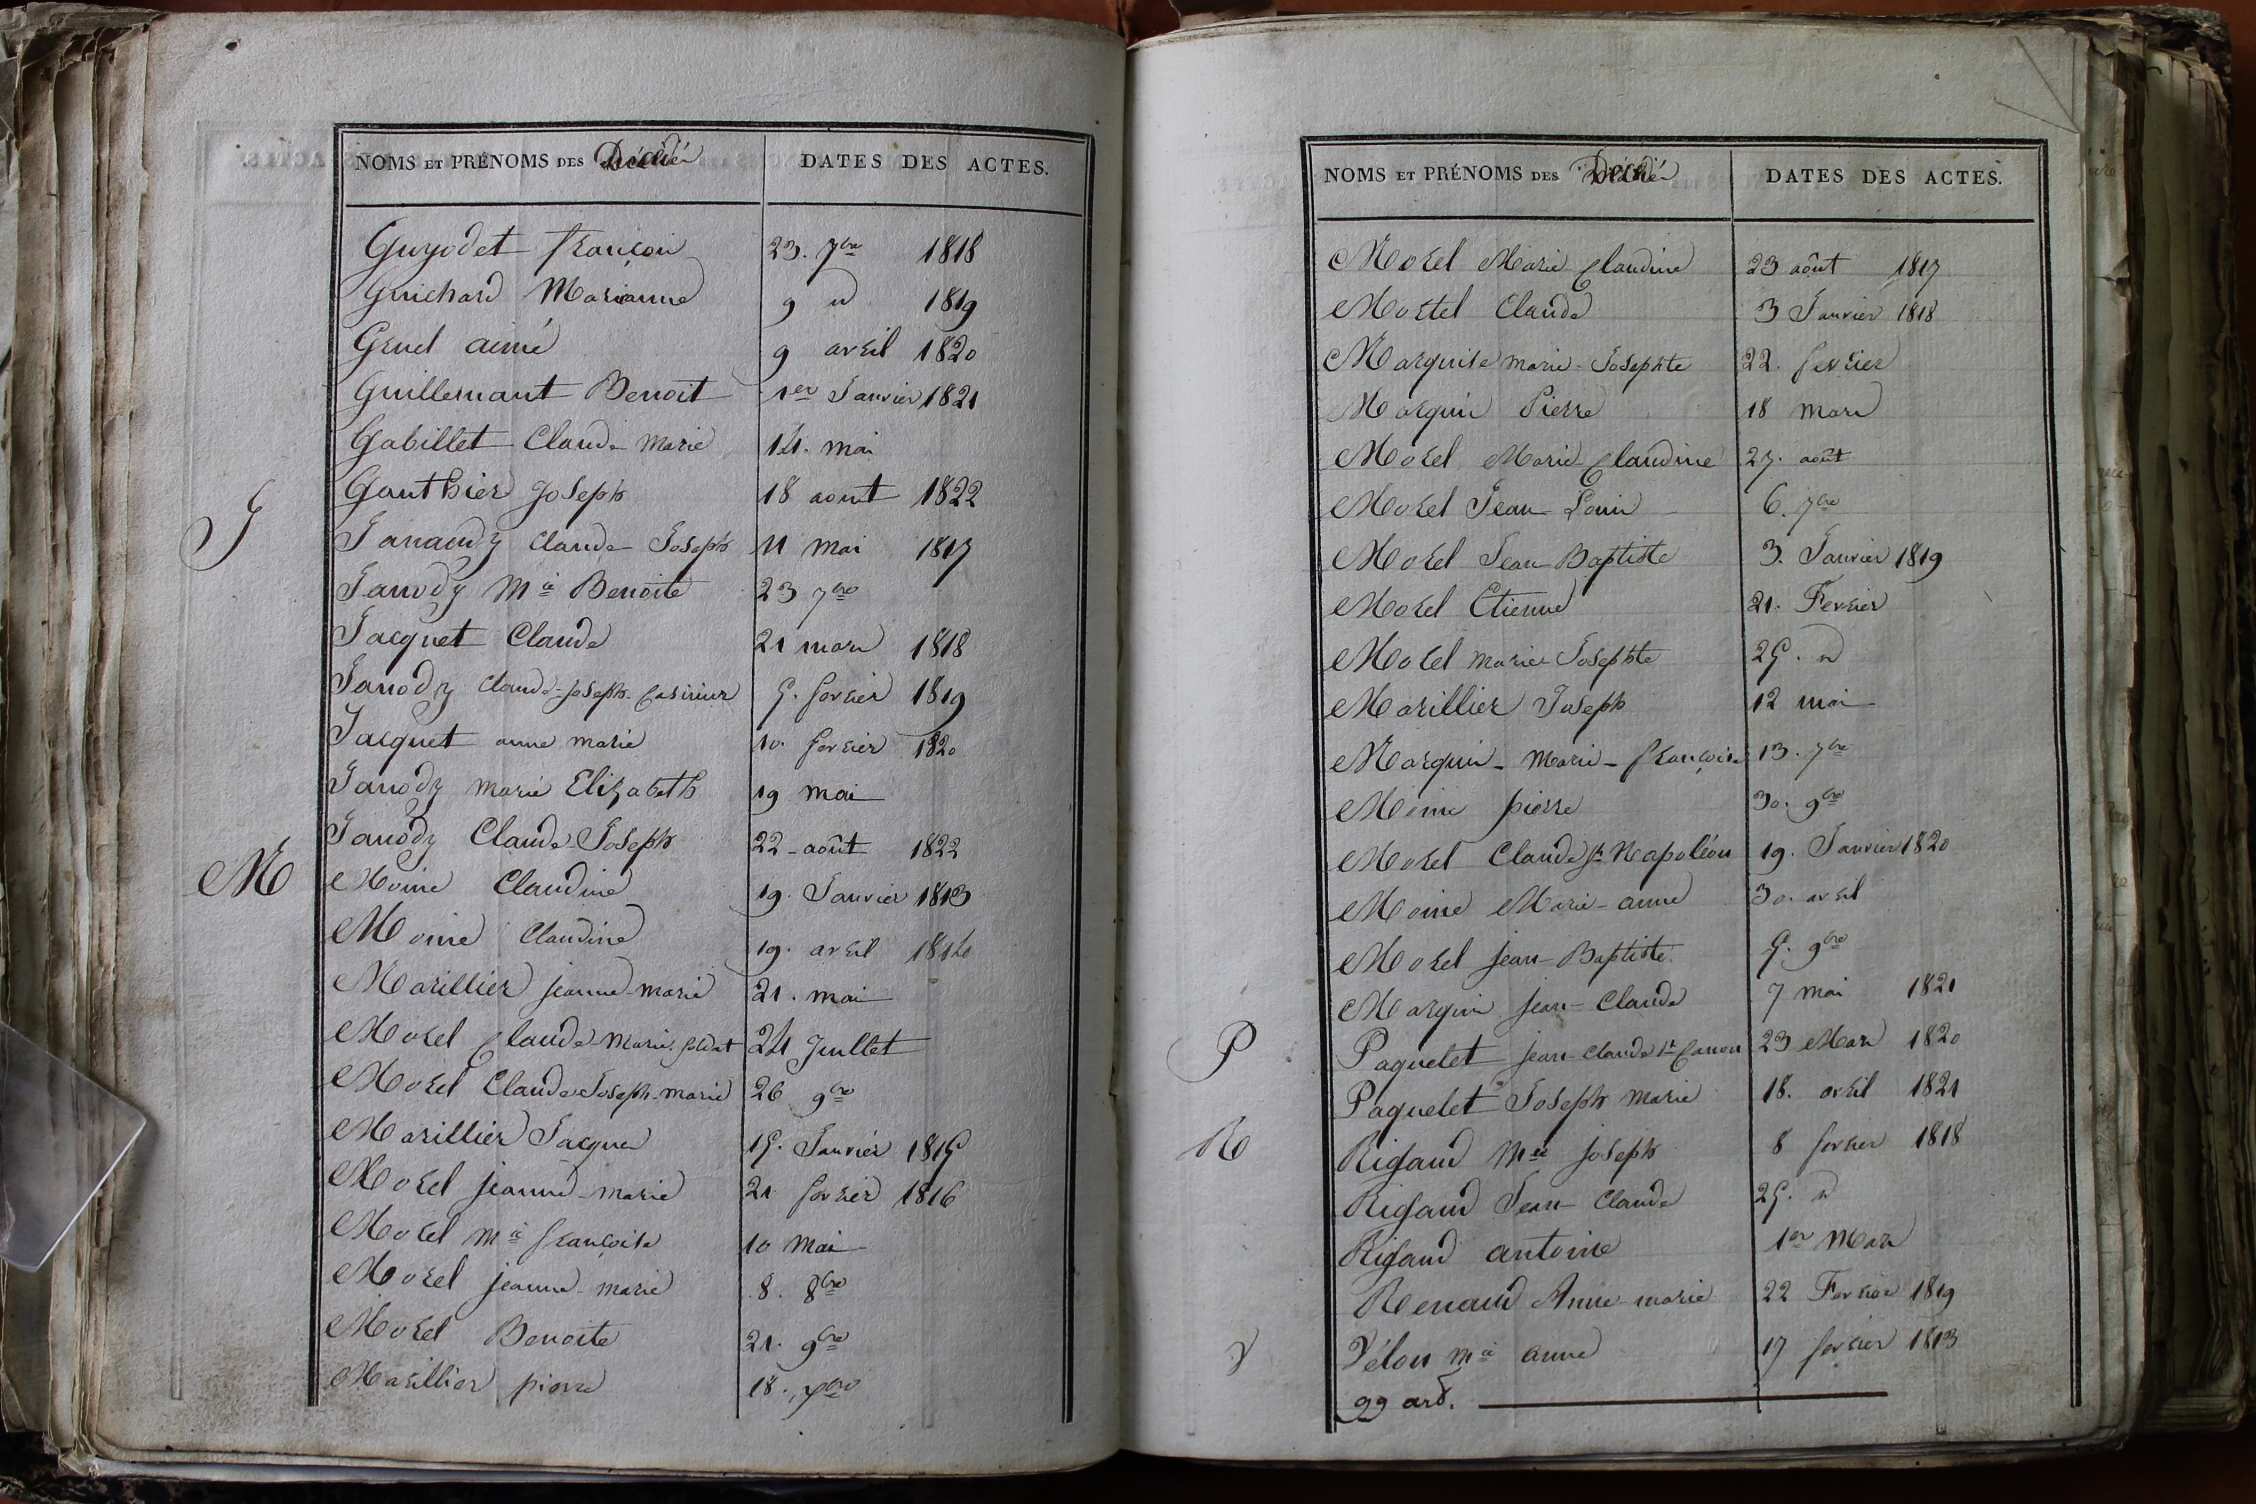 NOMS ET PRÉNOMS DES Décédés DATES DES ACTES.
Guyodet françois 23. 7bre 1818
Guichard Marianne 9 d 1819
Gruel aimé 9 avril 1820
Guillemant Benoit 1er Janvier 1821
Gabillet Claude marie 14. mai
Gauthier Joseph 18 aout 1822
J
Janaudy Claude Joseph 11 mai 1817
Janody Mie Benoite 23 7bre
Jacquet Claude 21 mars 1818
Janody Claude-Joseph-Casimir 5. fevrier 1819
Jacquet anne marie 10. fevrier 1820
Janody marie Elizabeth 19 mai
Janody Claude Joseph 22 août 1822
M
Moine Claudine 19. Janvier 1813
Moine Claudine 19. avril 1814
Marillier jeanne-marie 21. mai
Morel Claude Marie, soldat 24 Juillet
Morel Claude Joseph marie 26 9re
Marillier Jacques 15. Janvier 1815
Morel jeanne-marie 21 fevrier 1816
Morel Mie françoise 10 mai
Morel jeanne-marie 8. 8bre
Morel Benoite 21. 9bre
Marillier pierre 18. xbre
NOMS ET PRÉNOMS DES Décédés DATES DES ACTES.
Morel Marie Claudine 23 août 1817
Mortel Claude 3 Janvier 1818
Marquise marie-Josephte 22. fevrier
Marquis Pierre 18 mars
Morel Marie Claudine 27. août
Morel Jean Louis 6. 7bre
Morel Jean Baptiste 3. Janvier 1819
Morel Etienne 21. Fevrier
Morel marie Josephte 25. d
Marillier Joseph 12 mai
Marquis-Marie-françoise 13. 7bre
Moine pierre 30. 9bre
Morel Claude St Napoléon 19. Janvier 1820
Moine Marie-anne 30. avril
Morel jean-Baptiste 5. 9bre
Marquis jean-Claude 7 mai 1821
P
Paquelet jean-Claude dt Canon 23 Mars 1820
Paquelet Joseph marie 18. avril 1821
R
Rigaud Mie joseph 8 fevrier 1818
Rigaud Jean Claude 25. d
Rigaud antoine 1er Mars
Renaud Anne-marie 22 Fevrier 1819
V
Vélon Mie anne 17 fevrier 1813
99 art.